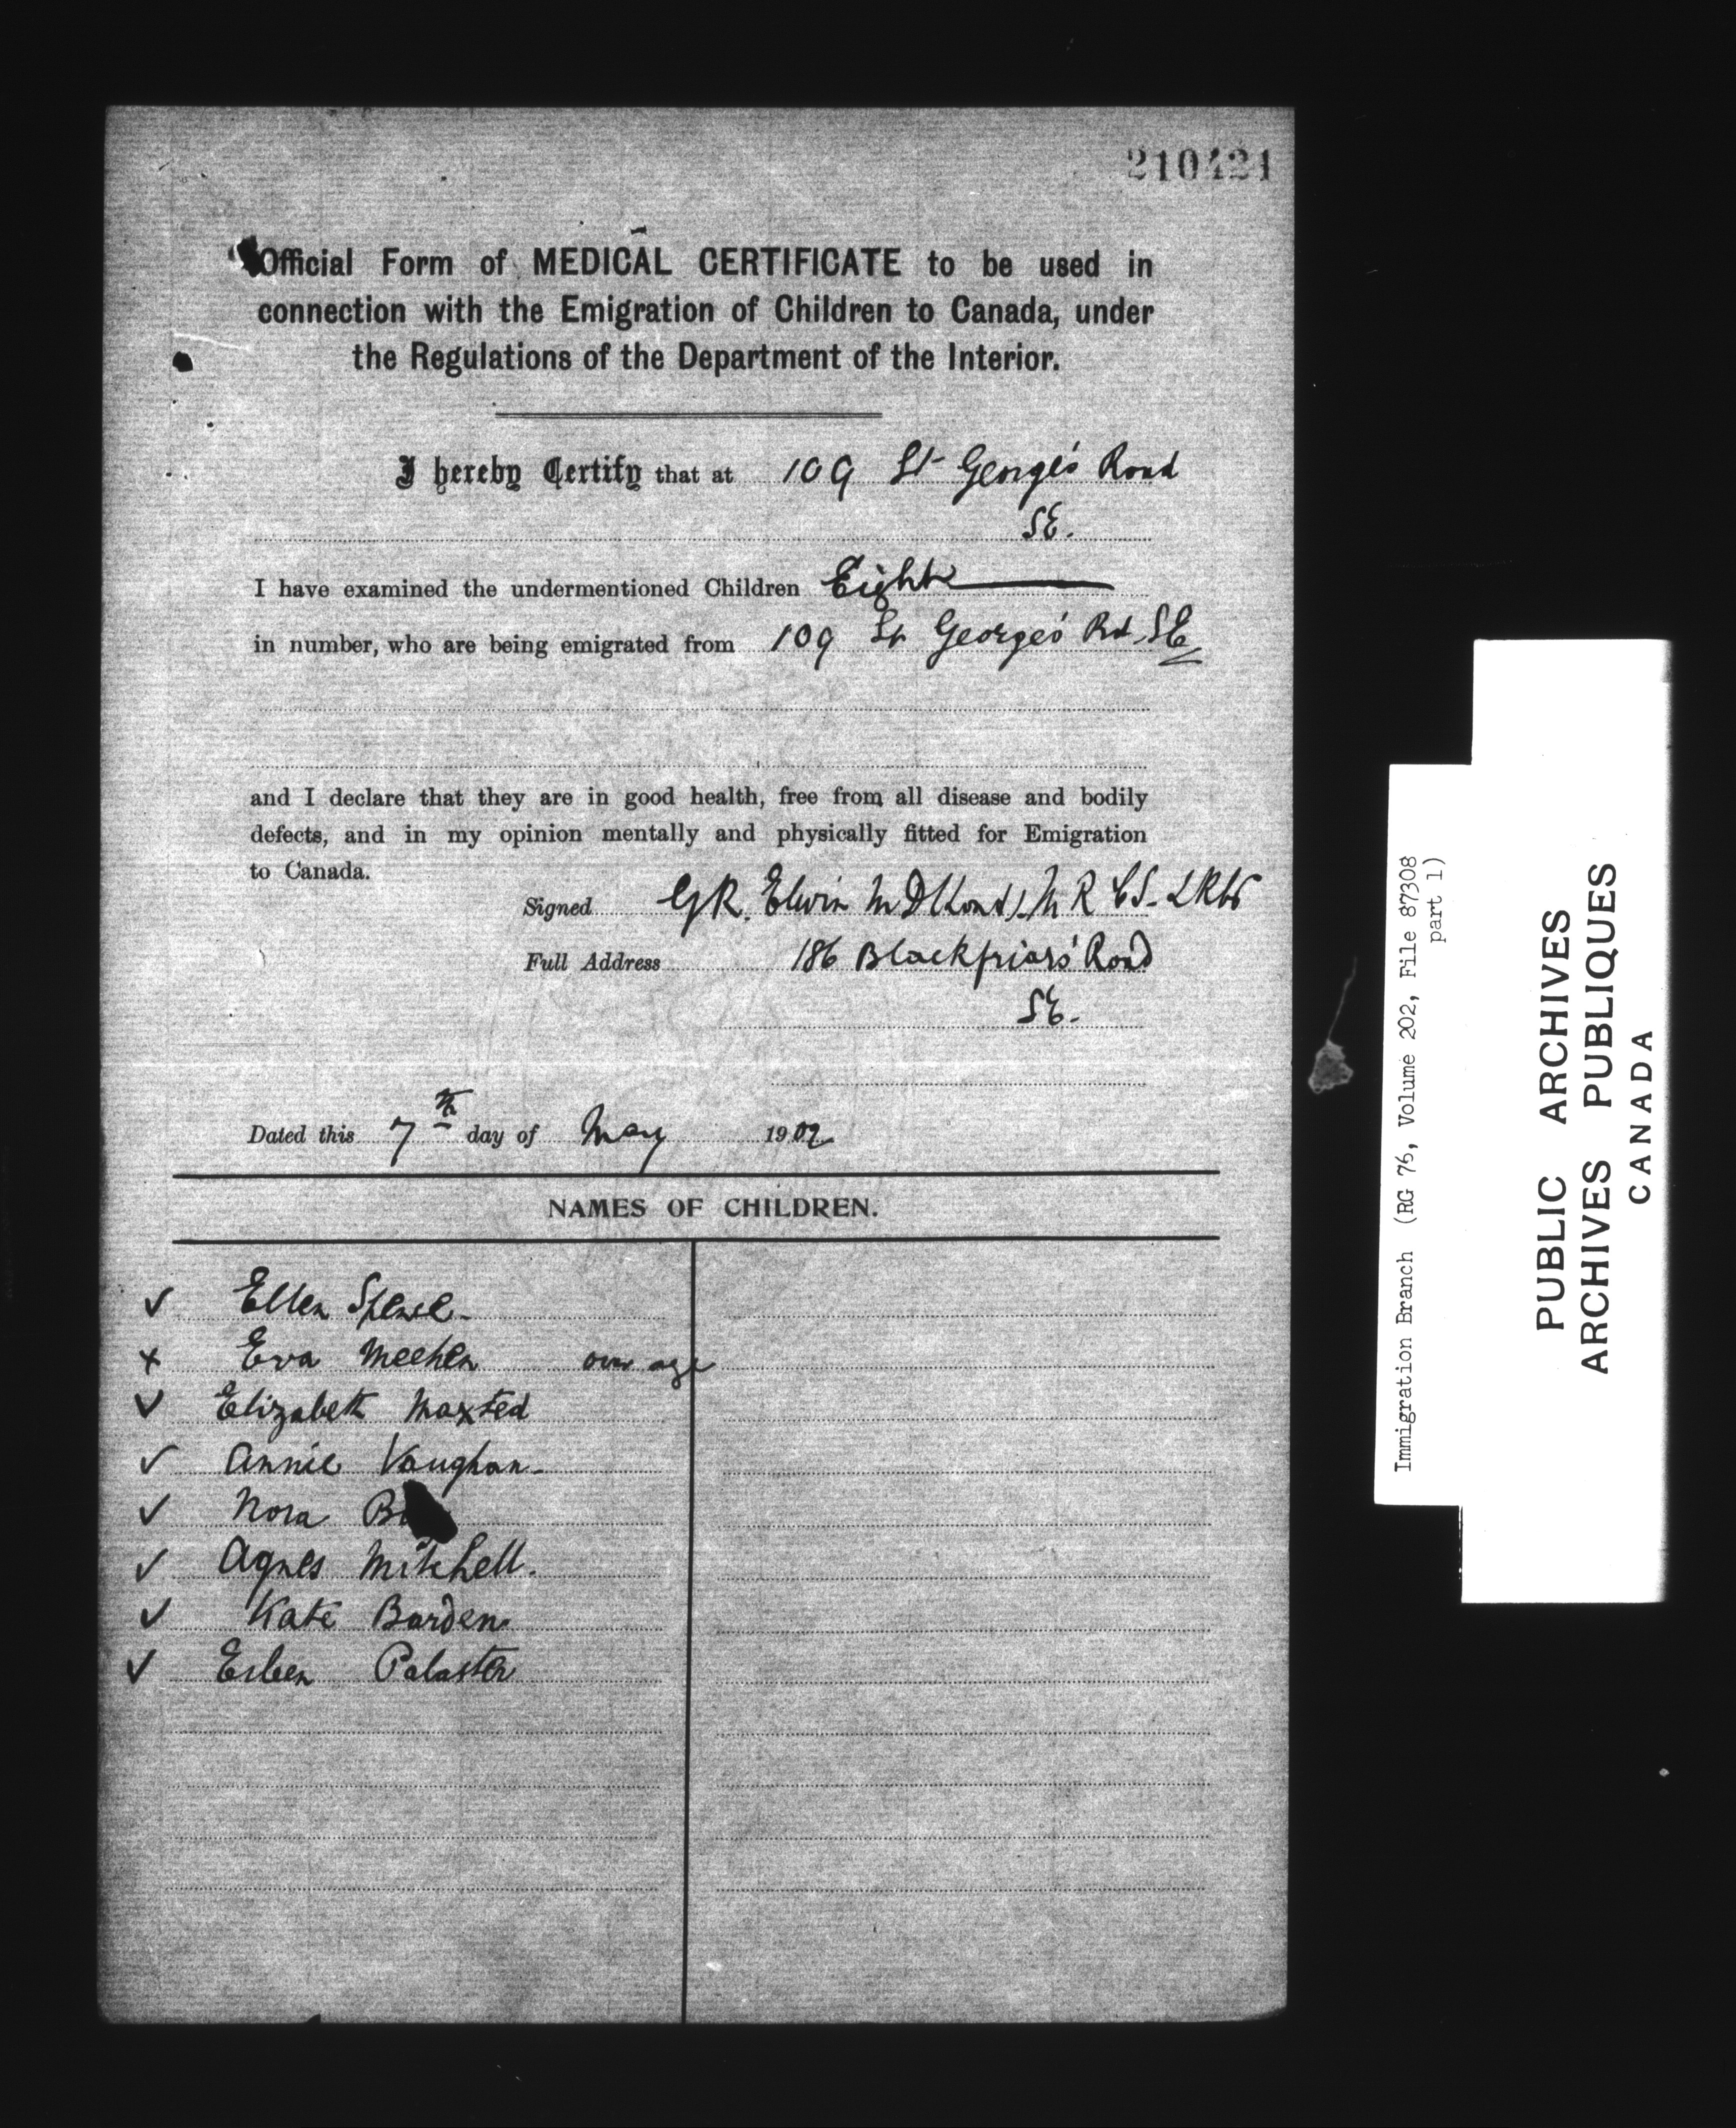 210421
Official Form of MEDICAL CERTIFICATE to be used in
connection with the Emigration of Children to Canada, under
the Regulations of the Department of the Interior.
I hereby Certify that at 109 St George's Road
SE.
I have examined the undermentioned Children Eight
in number, who are being emigrated from 109 St George's Rd, SE
and I declare that they are in good health, free from all disease and bodily
defects, and in my opinion mentally and physically fitted for Emigration
to Canada.
Signed G R. Elwin MD (Lond). M R CS.
Full Address 186 Blackfriars' Road
SE.
Dated this 7th day of May 1902
NAMES OF CHILDREN.
✓ Ellen
x Eva Meehen over age
✓ Elizabeth Maxted
✓ Annie Vaughan.
✓ Nora
✓ Agnes Mitchell.
✓ Kate Barden
✓ Palaster
Immigration Branch (RG 76, Volume 202, File 87308
part 1)
PUBLIC ARCHIVES
ARCHIVES PUBLIQUES
CANADA